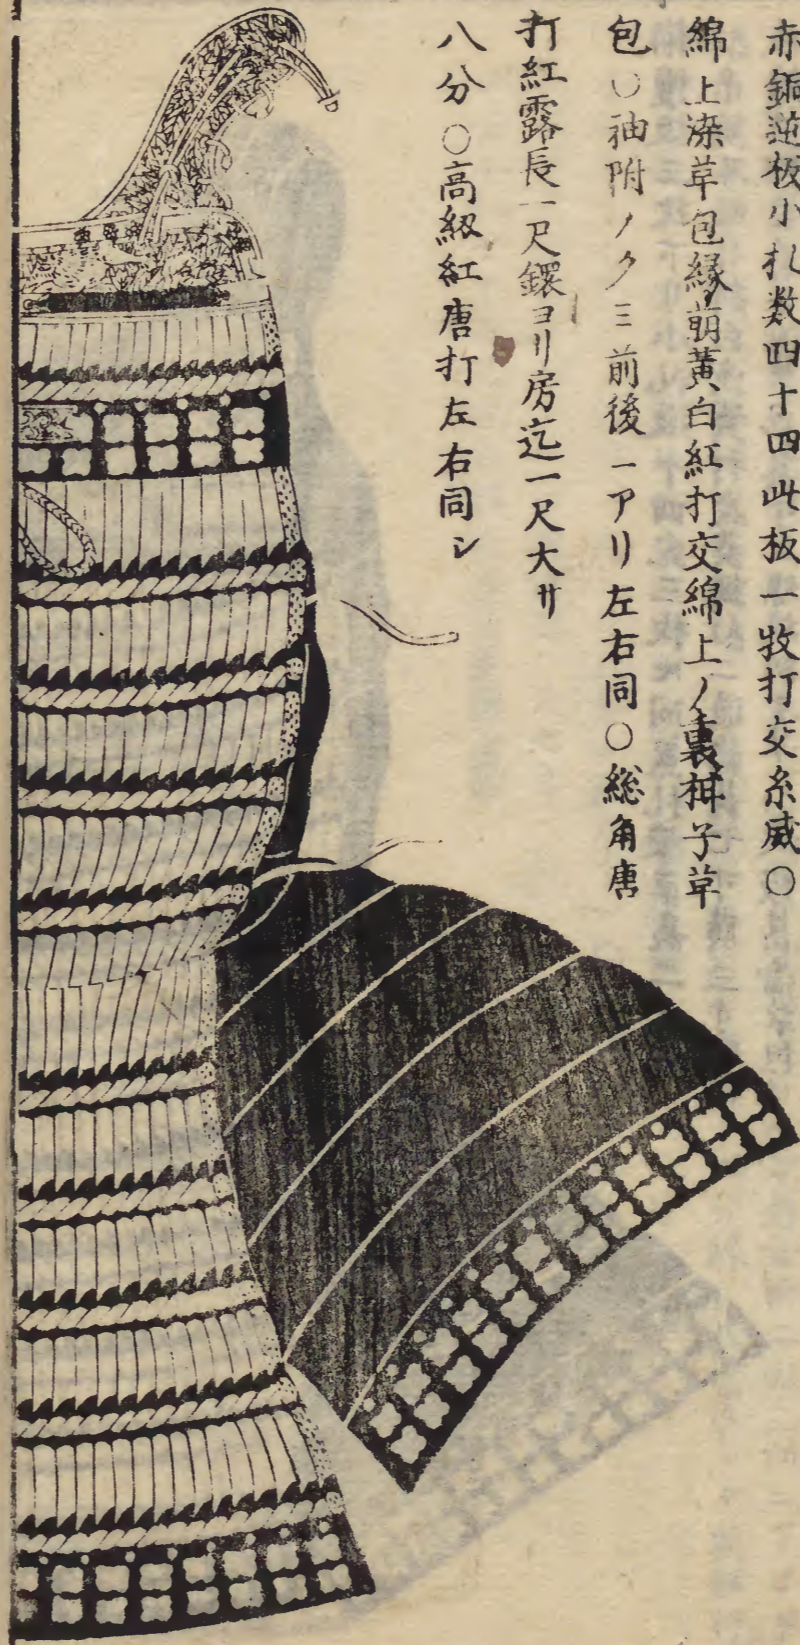 赤銅逆板小札数四十四此板一牧打交糸威○
綿上染草包縁萠黄白紅打交綿上ノ裏柑子草
包○袖附ノクミ前後一アリ左右同○総角唐
打紅露長一尺鐶ヨリ房迄一尺大サ
八分○高紐紅唐打左右同シ